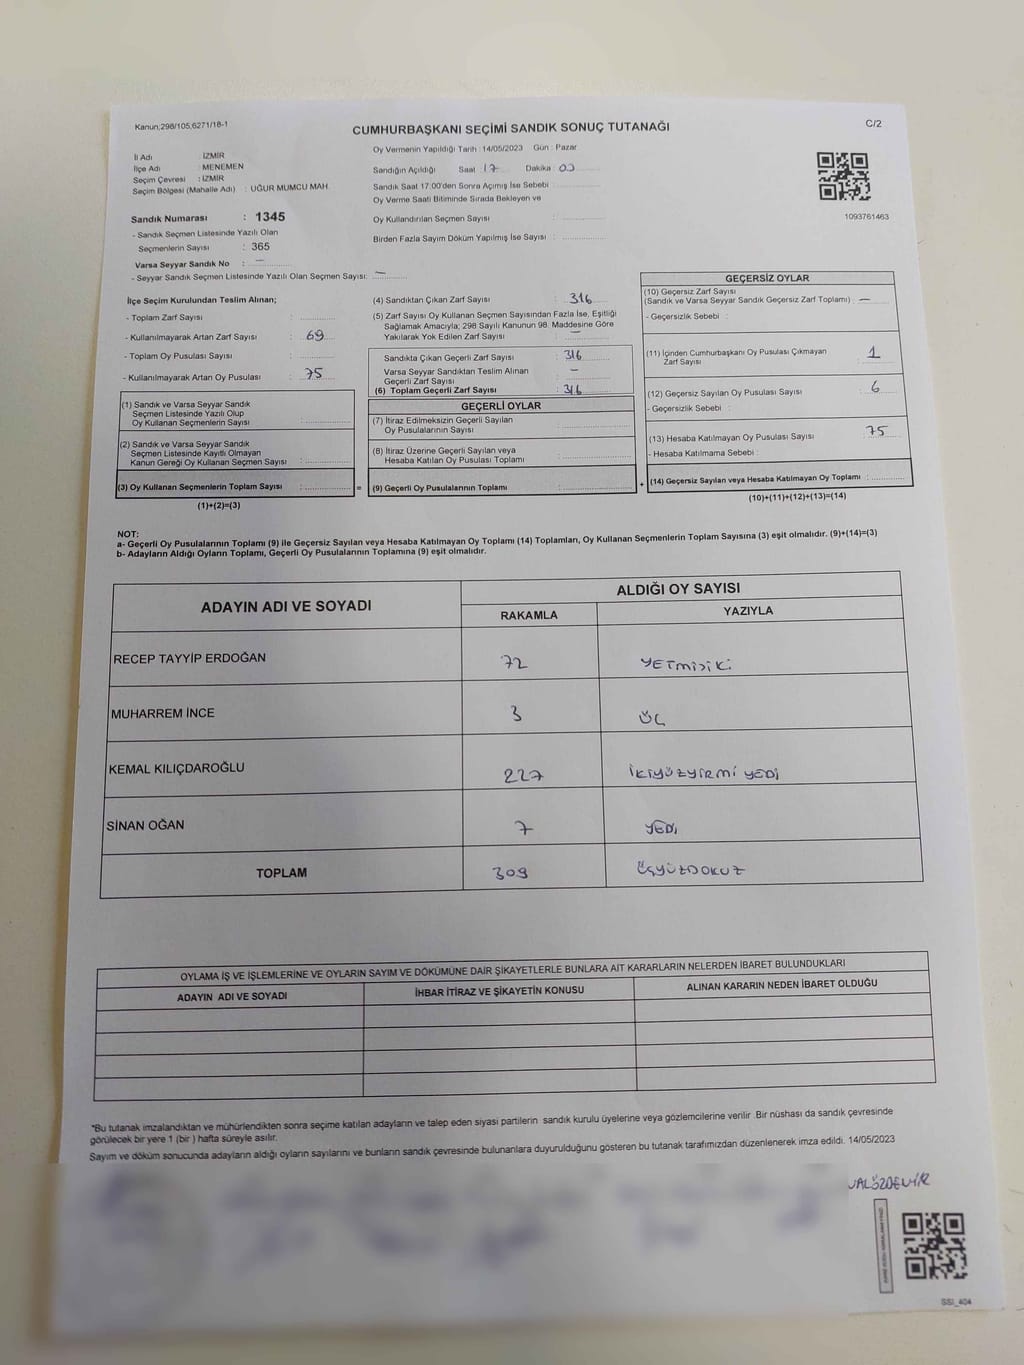 Kanun;298/105,6271/18-1
CUMHURBAŞKANI SEÇİMİ SANDIK SONUÇ TUTANAĞI
C/2
İl Adı : İZMİR
İlçe Adı : MENEMEN
Seçim Çevresi : İZMİR
Seçim Bölgesi (Mahalle Adı) : UĞUR MUMCU MAH.
Sandık Numarası : 1345
- Sandık Seçmen Listesinde Yazılı Olan
Seçmenlerin Sayısı : 365
Varsa Seyyar Sandık No : —
- Seyyar Sandık Seçmen Listesinde Yazılı Olan Seçmen Sayısı: —
Oy Vermenin Yapıldığı Tarih : 14/05/2023 Gün : Pazar
Sandığın Açıldığı Saat : 17 Dakika : 00
Sandık Saat 17:00'den Sonra Açımış İse Sebebi :
Oy Verme Saati Bitiminde Sırada Bekleyen ve
Oy Kullandırılan Seçmen Sayısı :
Birden Fazla Sayım Döküm Yapılmış İse Sayısı :
1093761463
İlçe Seçim Kurulundan Teslim Alınan;
- Toplam Zarf Sayısı :
- Kullanılmayarak Artan Zarf Sayısı : 69
- Toplam Oy Pusulası Sayısı :
- Kullanılmayarak Artan Oy Pusulası : 75
(1) Sandık ve Varsa Seyyar Sandık
Seçmen Listesinde Yazılı Olup
Oy Kullanan Seçmenlerin Sayısı :
(2) Sandık ve Varsa Seyyar Sandık
Seçmen Listesinde Kayıtlı Olmayan
Kanun Gereği Oy Kullanan Seçmen Sayısı :
(3) Oy Kullanan Seçmenlerin Toplam Sayısı :
(1)+(2)=(3)
(4) Sandıktan Çıkan Zarf Sayısı : 316
(5) Zarf Sayısı Oy Kullanan Seçmen Sayısından Fazla İse, Eşitliği
Sağlamak Amacıyla; 298 Sayılı Kanunun 98. Maddesine Göre
Yakılarak Yok Edilen Zarf Sayısı : —
Sandıkta Çıkan Geçerli Zarf Sayısı : 316
Varsa Seyyar Sandıktan Teslim Alınan
Geçerli Zarf Sayısı : —
(6) Toplam Geçerli Zarf Sayısı : 316
GEÇERLİ OYLAR
(7) İtiraz Edilmeksizin Geçerli Sayılan
Oy Pusulalarının Sayısı :
(8) İtiraz Üzerine Geçerli Sayılan veya
Hesaba Katılan Oy Pusulası Toplamı :
= (9) Geçerli Oy Pusulalarının Toplamı :
GEÇERSİZ OYLAR
(10) Geçersiz Zarf Sayısı
(Sandık ve Varsa Seyyar Sandık Geçersiz Zarf Toplamı) : —
- Geçersizlik Sebebi :
(11) İçinden Cumhurbaşkanı Oy Pusulası Çıkmayan
Zarf Sayısı : 1
(12) Geçersiz Sayılan Oy Pusulası Sayısı : 6
- Geçersizlik Sebebi :
(13) Hesaba Katılmayan Oy Pusulası Sayısı : 75
- Hesaba Katılmama Sebebi :
+ (14) Geçersiz Sayılan veya Hesaba Katılmayan Oy Toplamı :
(10)+(11)+(12)+(13)=(14)
NOT:
a- Geçerli Oy Pusulalarının Toplamı (9) ile Geçersiz Sayılan veya Hesaba Katılmayan Oy Toplamı (14) Toplamları, Oy Kullanan Seçmenlerin Toplam Sayısına (3) eşit olmalıdır. (9)+(14)=(3)
b- Adayların Aldığı Oyların Toplamı, Geçerli Oy Pusulalarının Toplamına (9) eşit olmalıdır.
ADAYIN ADI VE SOYADI
ALDIĞI OY SAYISI
RAKAMLA YAZIYLA
RECEP TAYYİP ERDOĞAN 72 YETMİŞİKİ
MUHARREM İNCE 3 ÜÇ
KEMAL KILIÇDAROĞLU 227 İKİYÜZYİRMİ YEDİ
SİNAN OĞAN 7 YEDİ
TOPLAM 309 ÜÇYÜZDOKUZ
OYLAMA İŞ VE İŞLEMLERİNE VE OYLARIN SAYIM VE DÖKÜMÜNE DAİR ŞİKAYETLERLE BUNLARA AİT KARARLARIN NELERDEN İBARET BULUNDUKLARI
ADAYIN ADI VE SOYADI İHBAR İTİRAZ VE ŞİKAYETİN KONUSU ALINAN KARARIN NEDEN İBARET OLDUĞU
*Bu tutanak imzalandıktan ve mühürlendikten sonra seçime katılan adayların ve talep eden siyasi partilerin sandık kurulu üyelerine veya gözlemcilerine verilir .Bir nüshası da sandık çevresinde
görülecek bir yere 1 (bir ) hafta süreyle asılır.
Sayım ve döküm sonucunda adayların aldığı oyların sayılarını ve bunların sandık çevresinde bulunanlara duyurulduğunu gösteren bu tutanak tarafımızdan düzenlenerek imza edildi. 14/05/2023
SSI_404